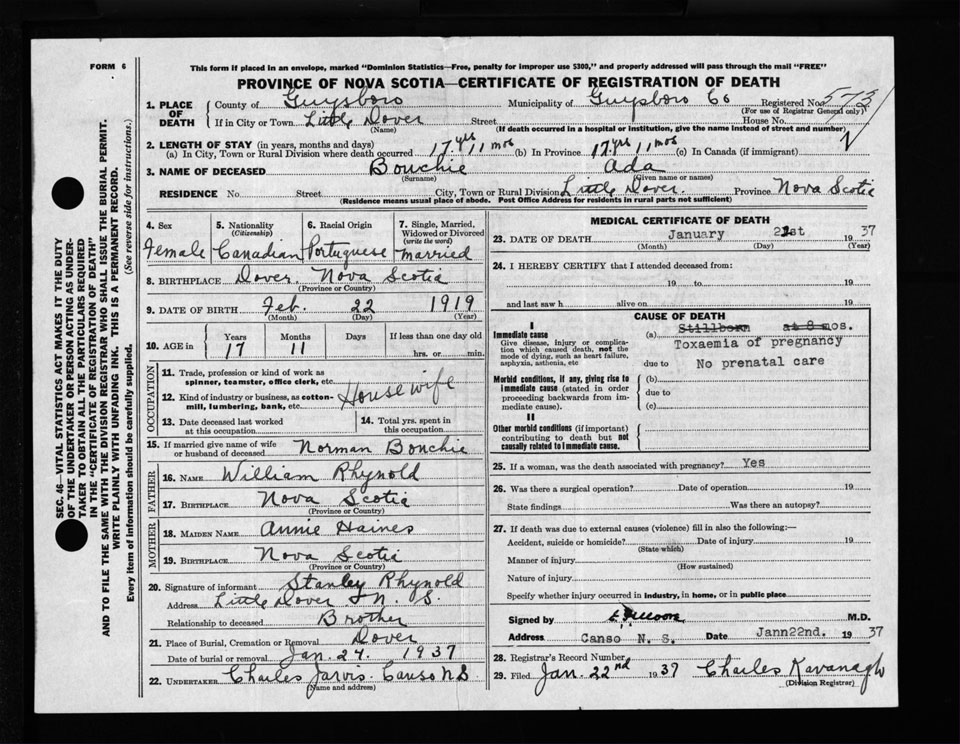 FORM 6
This form if placed in an envelope, marked "Dominion Statistics—Free, penalty for improper use $300," and properly addressed will pass through the mail "FREE"
PROVINCE OF NOVA SCOTIA—CERTIFICATE OF REGISTRATION OF DEATH
1. PLACE OF DEATH
County of Guysboro Municipality of Guysboro Co Registered No. 573
(For use of Registrar General only)
If in City or Town Little Dover Street House No.
(Name) (If death occurred in a hospital or institution, give the name instead of street and number)
2. LENGTH OF STAY (in years, months and days)
(a) In City, Town or Rural Division where death occurred 17 yrs 11 mos (b) In Province 17 yrs 11 mos (c) In Canada (if immigrant)
3. NAME OF DECEASED Bouchie Ada
(Surname) (Given name or names)
RESIDENCE No. Street City, Town or Rural Division Little Dover. Province Nova Scotia
(Residence means usual place of abode. Post Office Address for residents in rural parts not sufficient)
4. Sex
Female
5. Nationality
(Citizenship)
Canadian
6. Racial Origin
Portuguese
7. Single, Married,
Widowed or Divorced
(write the word)
Married
8. BIRTHPLACE Dover, Nova Scotia
(Province or Country)
9. DATE OF BIRTH Feb. 22 1919
(Month) (Day) (Year)
10. AGE in
Years Months Days If less than one day old
17 11 hrs. or min.
OCCUPATION
11. Trade, profession or kind of work as
spinner, teamster, office clerk, etc.
12. Kind of industry or business, as cotton-
mill, lumbering, bank, etc.
Housewife
13. Date deceased last worked
at this occupation
14. Total yrs. spent in
this occupation
15. If married give name of wife
or husband of deceased Norman Bouchie
FATHER
16. NAME William Rhynold
17. BIRTHPLACE Nova Scotia
(Province or Country)
MOTHER
18. MAIDEN NAME Annie Haines
19. BIRTHPLACE Nova Scotia
(Province or Country)
20. Signature of informant Stanley Rhynold
Address Little Dover N. S.
Relationship to deceased Brother
21. Place of Burial, Cremation or Removal Dover
Date of burial or removal Jan. 24. 1937
22. UNDERTAKER Charles Jarvis. Canso N S
(Name and address)
MEDICAL CERTIFICATE OF DEATH
23. DATE OF DEATH January 21st 1937
(Month) (Day) (Year)
24. I HEREBY CERTIFY that I attended deceased from:
19 to 19
and last saw h alive on 19
CAUSE OF DEATH
I
Immediate cause
Give disease, injury or complica-
tion which caused death, not the
mode of dying, such as heart failure,
asphyxia, asthenia, etc
(a) Stillborn at 8 mos.
Toxaemia of pregnancy
due to No prenatal care
Morbid conditions, if any, giving rise to
immediate cause (stated in order
proceeding backwards from im-
mediate cause).
(b)
due to
(c)
II
Other morbid conditions (if important)
contributing to death but not
causally related to immediate cause.
25. If a woman, was the death associated with pregnancy? Yes
26. Was there a surgical operation? Date of operation 19
State findings Was there an autopsy?
27. If death was due to external causes (violence) fill in also the following:—
Accident, suicide or homicide? Date of injury 19
(State which)
Manner of injury
(How sustained)
Nature of injury
Specify whether injury occurred in industry, in home, or in public place
Signed by M.D.
Address Canso N. S. Date Jann22nd. 1937
28. Registrar's Record Number
29. Filed Jan. 22nd 1937 Charles Kavanagh
(Division Registrar)
SEC. 46—VITAL STATISTICS ACT MAKES IT THE DUTY
OF THE UNDERTAKER OR PERSON ACTING AS UNDER-
TAKER TO OBTAIN ALL THE PARTICULARS REQUIRED
IN THE "CERTIFICATE OF REGISTRATION OF DEATH"
AND TO FILE THE SAME WITH THE DIVISION REGISTRAR WHO SHALL ISSUE THE BURIAL PERMIT.
WRITE PLAINLY WITH UNFADING INK. THIS IS A PERMANENT RECORD.
Every item of information should be carefully supplied. (See reverse side for instructions.)